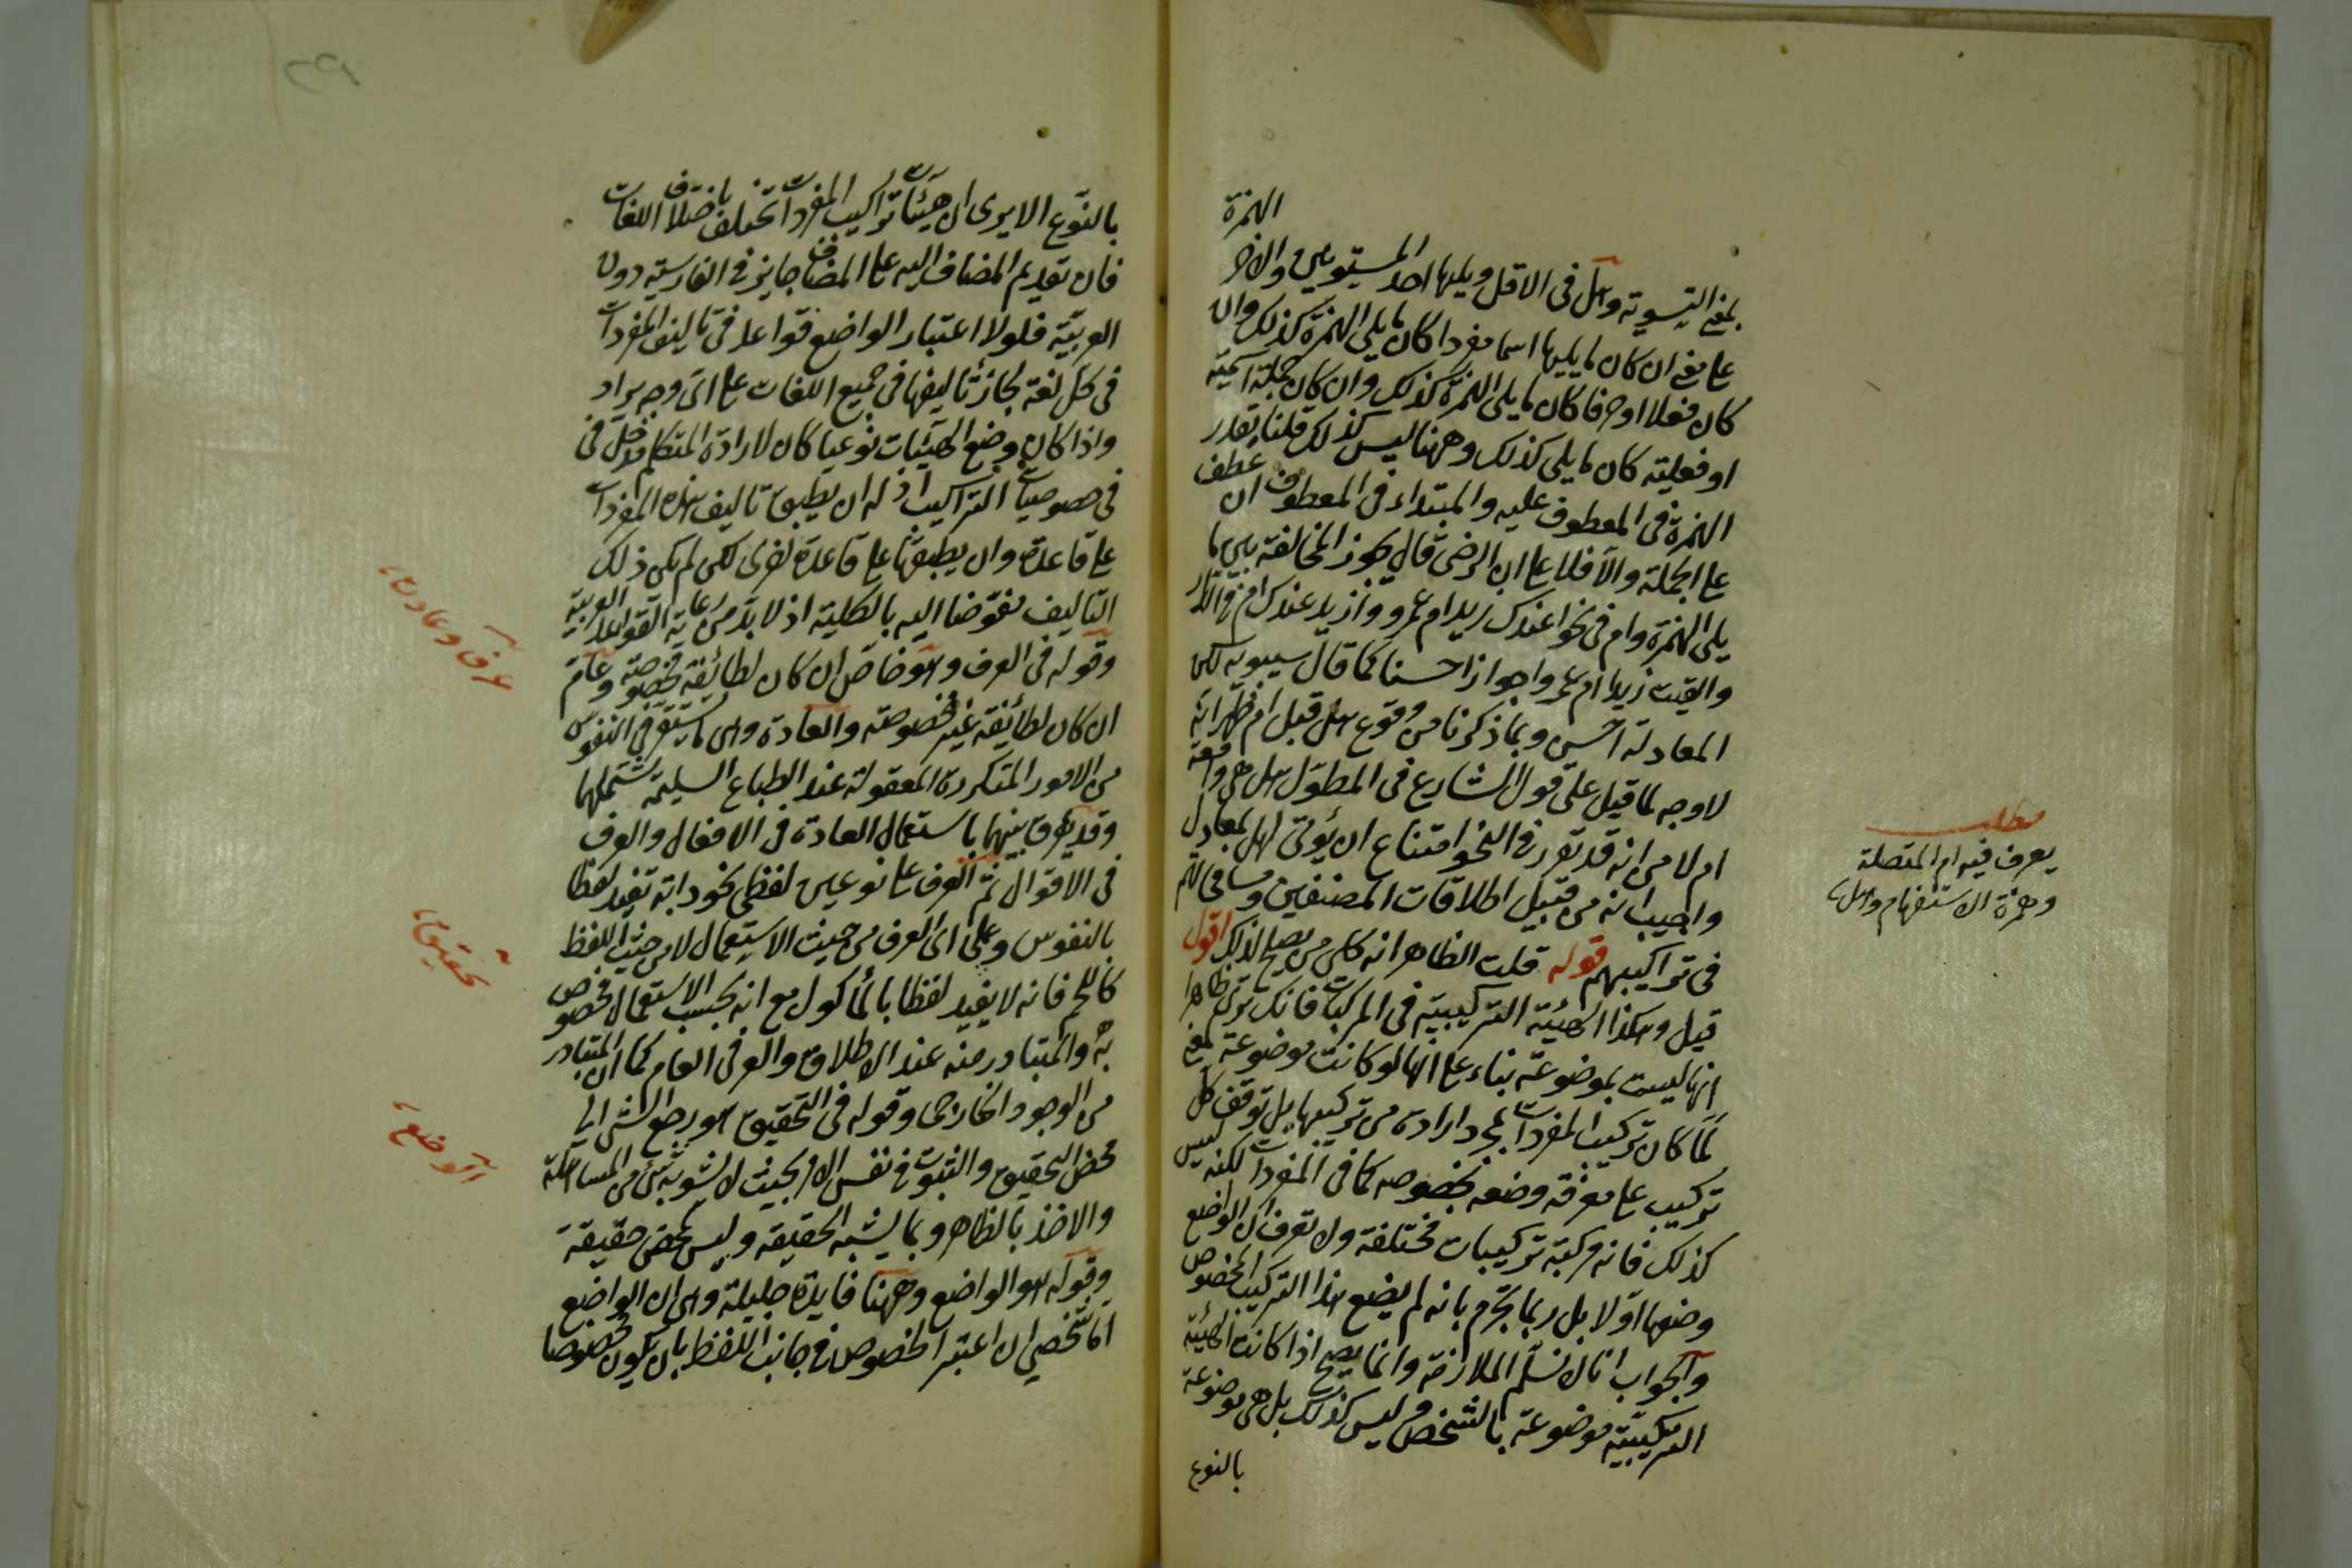 الهمزة
بمعنى التسوية وهل في الاقل ويليها احد المستويين والآخر
على معنى ان كان ما يليها اسما مفردا كان ما يلي الهمزة كذلك وان
كان فعلا او حرفا كان ما يلي الهمزة كذلك وان كان جملة اسمية
او فعلية كان ما يلي كذلك وههنا ليس كذلك قلنا يقدر
الهمزة في المعطوف عليه والمبتداء في المعطوف ان عطف
على الجملة والا فلا على ان الرضي قال يجوز المخالفة بين ما
يلي الهمزة وام في نحو اعندك زيد ام عمرو وأزيد عندك ام في الدار
والقيت زيدا ام عمروا جوازا حسنا كما قال سيبويه لكن
المعادلة احسن وبما ذكرنا من وقوع هل قبل ام ظهر انه
لا وجه لما قيل على قول الشارح في المطول هل هي واقعة
ام لا من انه قد تقرر في النحو امتناع ان يؤتى لهل بمعادل
واجيب انه من قبيل اطلاقات المصنفين ومسامحاتهم
في تراكيبهم قوله قلت الظاهر انه كلي من يصلح لذلك اقول
قيل وهكذا الهيئة التركيبية في المركبات فانك ترى ظاهرا
انها ليست بموضوعة بناء على انها لو كانت موضوعة لمعنى
لما كان تركيب المفردات بمجرد ارادة من تركيبها بل توقف كل
تركيب على معرفة وضعه بخصوصه كما في المفردات لكنه ليس
كذلك فانه مركبة تركيبات مختلفة ولا تعرف ان الواضع
وضعها اولا بل ربما تجزم بانه لم يضع هذا التركيب المخصوص
والجواب انا لا نسلم الملازمة وانما يصح اذا كانت الهيئة
التركيبية موضوعة بالشخص وليس كذلك بل هي موضوعة
بالنوع
مطلب
يعرف فيه ام المتصلة
وهمزة الاستفهام وهل
بالنوع الا يرى ان هيئات تراكيب المفردات تختلف باختلاف اللغات
فان تقديم المضاف اليه على المضاف جايز في الفارسية دون
العربية فلولا اعتبار الواضع قواعد في تاليف المفردات
في كل لغة لجاز تاليفها في جميع اللغات على اي وجه يراد
واذا كان وضع الهيئات نوعيا كان لارادة المتكلم دخل في
في خصوصيات التراكيب اذ له ان يطبق تاليف هذه المفردات
على قاعدة وان يطبقها على قاعدة اخرى لكن لم يكن ذلك
التاليف مفوضا اليه بالكلية اذ لا بد من رعاية القواعد العربية
وقوله في العرف وهو خاص ان كان لطائفة مخصوصة وعام
ان كان لطائفة غير مخصوصة والعادة وهي ما يستقر في النفوس
من الامور المتكررة المعقولة عند الطباع السليمة تشملهما
وقد يفرق بينهما باستعمال العادة في الافعال والعرف
في الاقوال ثم العرف على نوعين لفظي نحو دابة تفيد لفظا
بالنفوس وعملي اي العرف من حيث الاستعمال لا من حيث اللفظ
كاللحم فانه لا يفيد لفظا بالمأكول مع انه بحسب الاستعمال مخصوص
به والمتبادر منه عند الاطلاق والعرفي العام كما ان المتبادر
من الوجود الخارجي وقوله في التحقيق هو رجع الشئ الى
محض التحقيق والثبوت في نفس الامر بحيث لا يشوبه شئ من المساهلة
والاخذ بالظاهر وبما يشبه الحقيقة وليس بمحض حقيقة
وقوله هو الواضع وههنا فايدة جليلة وهي ان الواضع
اما شخصي ان اعتبر الخصوص في جانب اللفظ بان يكون مخصوصا
عرف وعادت
تحقيق
الوضع
٢٩